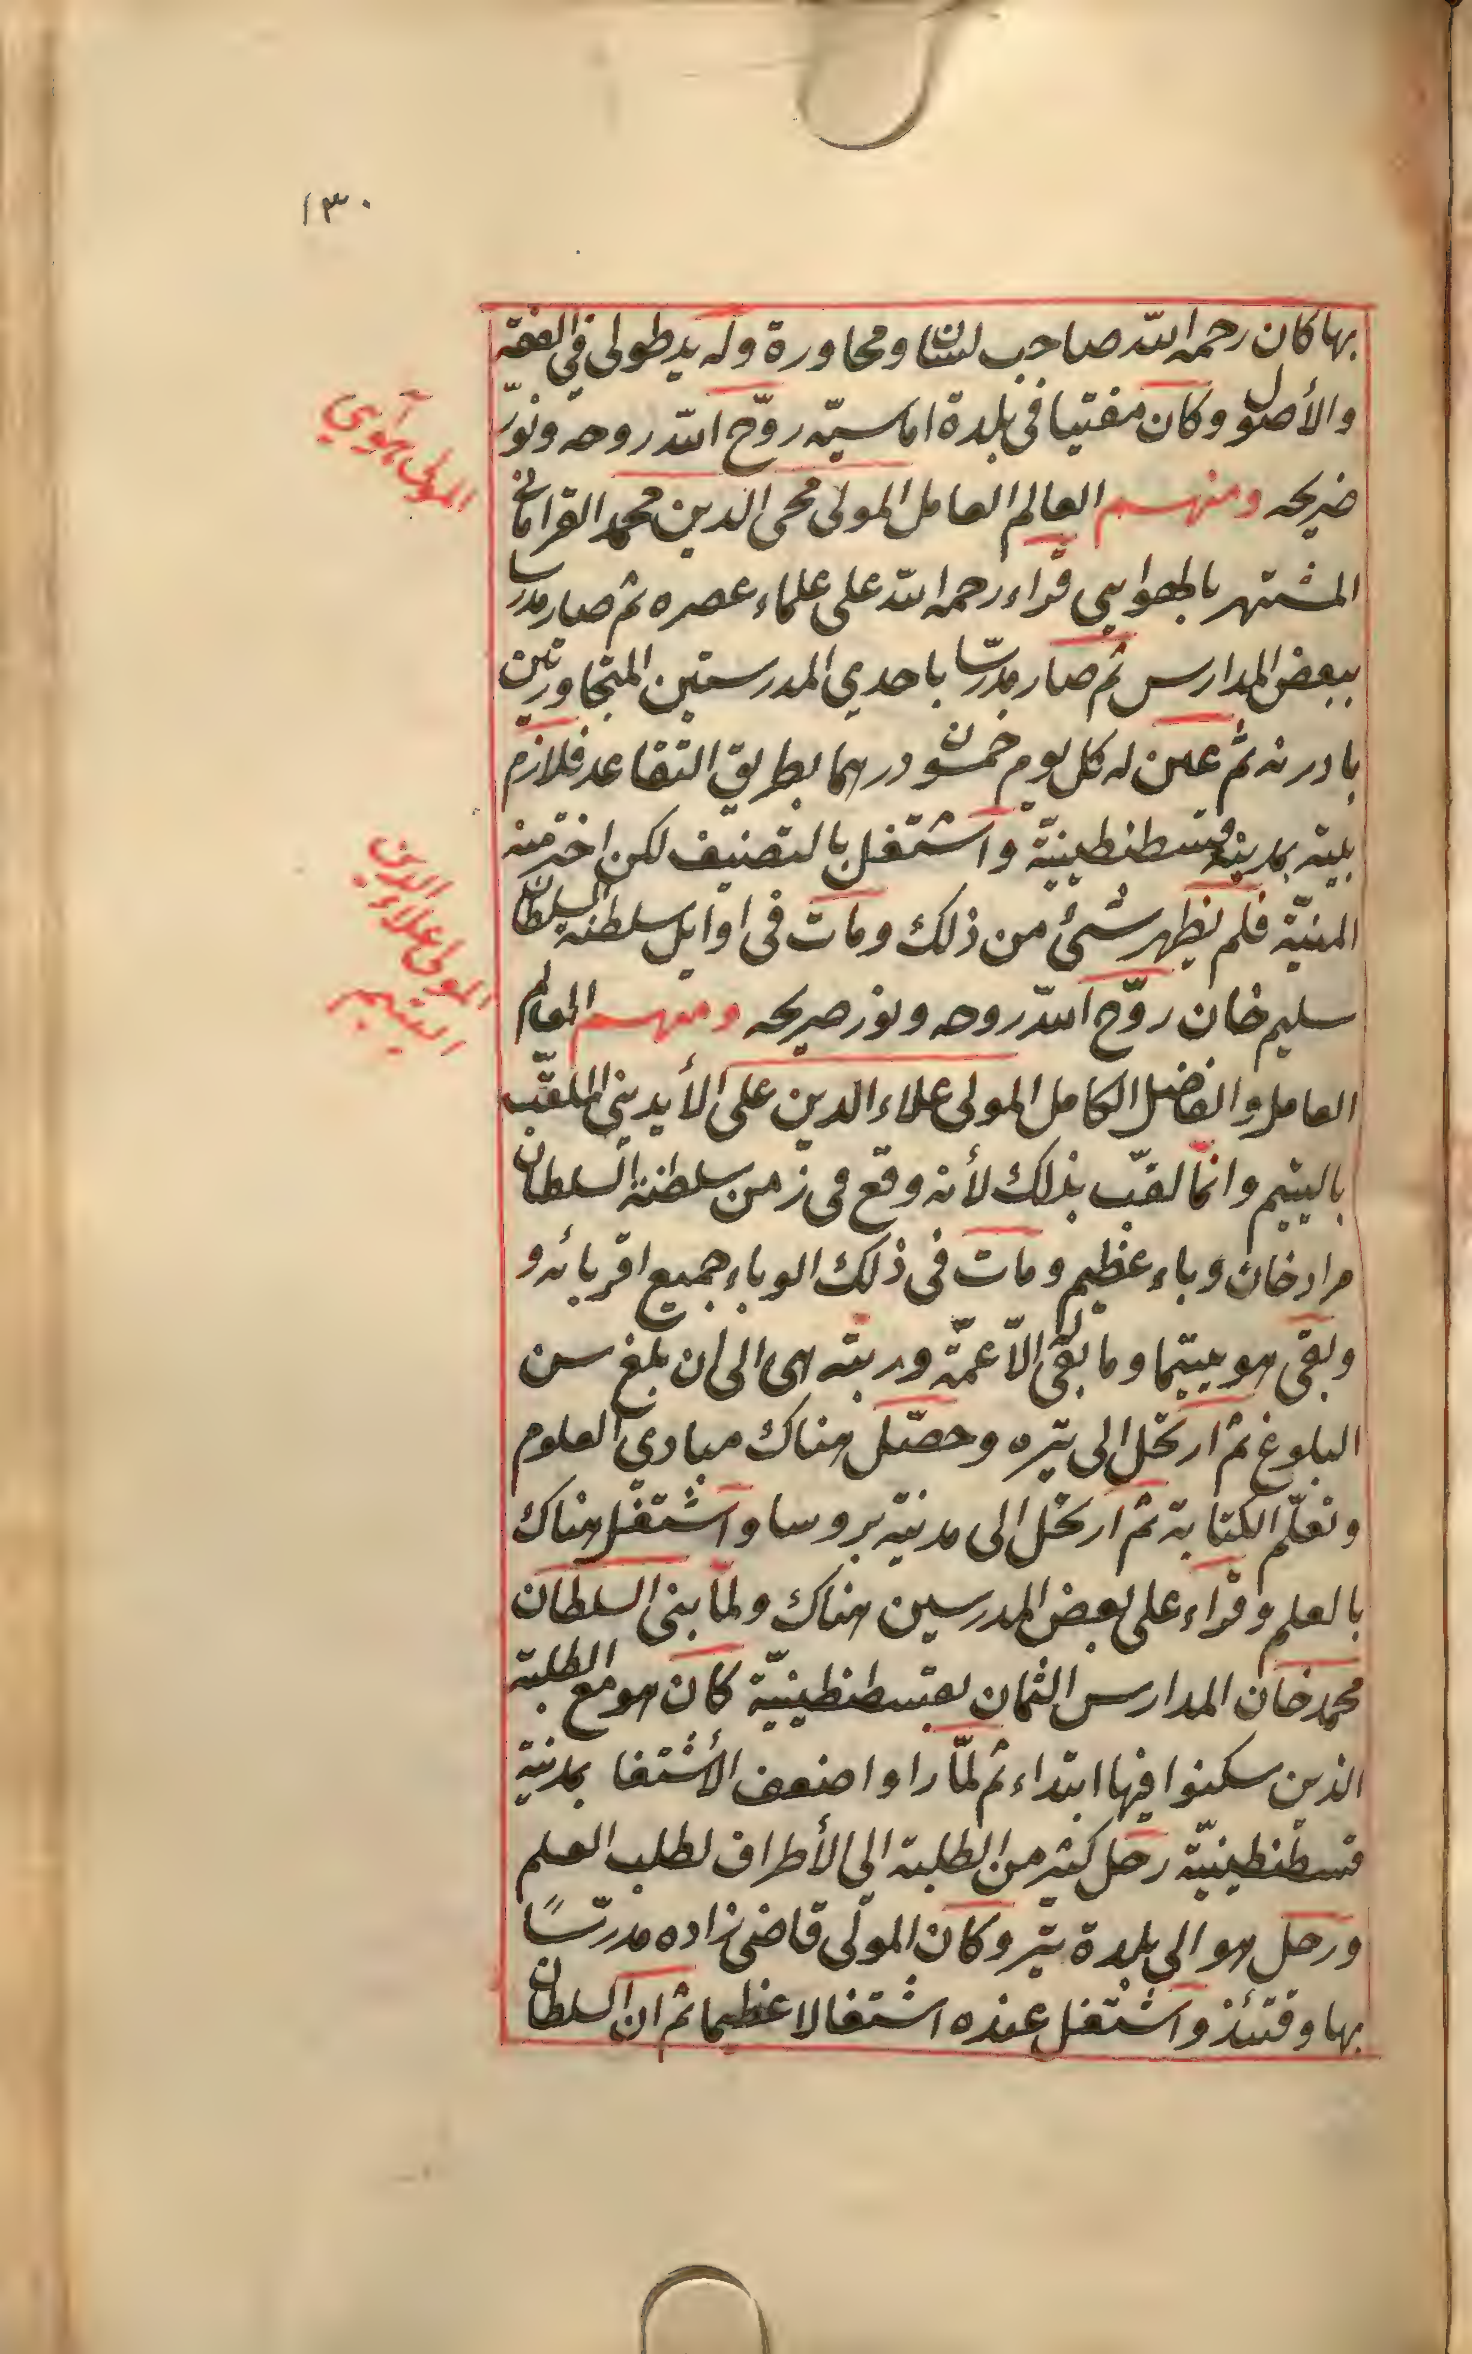 ١٣٠
بها كان رحمه الله صاحب لسان ومحاورة وله يد طولى في الفقه
والأصول وكان مفتيا في بلدة اماسيّه روّح الله روحه ونوّر
ضريحه ومنهم العالم العامل المولى محى الدين محمد القراماني
المشتهر رحمه الله على علماء عصره ثم صار مدرسا
ببعض المدارس ثم صار مدرّسا باحدي المدرستين المتجاورتين
بادرنه ثمّ عين له كل يوم خمسون درهما بطريق التقاعد فلازم
بيته بمدينة قسطنطينيّة واشتغل بالتصنيف لكن اخترمته
المنيّة فلم يظهر شئ من ذلك ومات في اوايل سلطنة السلطان
سليم خان روّح الله روحه ونور ضريحه ومنهم العالم
العامل والفاضل الكامل المولى علاء الدين على الأيديني الملقّب
باليتيم وانّما لقّب بذلك لأنه وقع في زمن سلطنة السلطان
مراد خان وباء عظيم ومات في ذلك الوباء جميع اقربائه و
وبقى هو يتيما وما بقى الاّ عمّة وربته هى الى ان بلغ سن
البلوغ ثم ارتحل الى تيره وحصّل هناك مبادى العلوم
وتعلّم الكتابة ثم ارتحل الى مدينة بروسا واشتغل هناك
بالعلم وقراء على بعض المدرسين هناك ولمّا بنى السلطان
محمد خان المدارس الثمان بقسطنطينيّة كان هو مع الطلبة
الذين سكنوا فيها ابتداء ثم لمّا راوا ضعف الأشتغا بمدينة
قسطنطينيّة رحل كثير من الطلبة الى الأطراف لطلب العلم
ورحل هو الى بلدة تيره وكان المولى قاضى زاده مدرّسًا
بها وقتئذ واشتغل عنده اشتغالا عظيما ثم ان السلطان
المولى آهوي
المولى علاء الدين
اليتيم